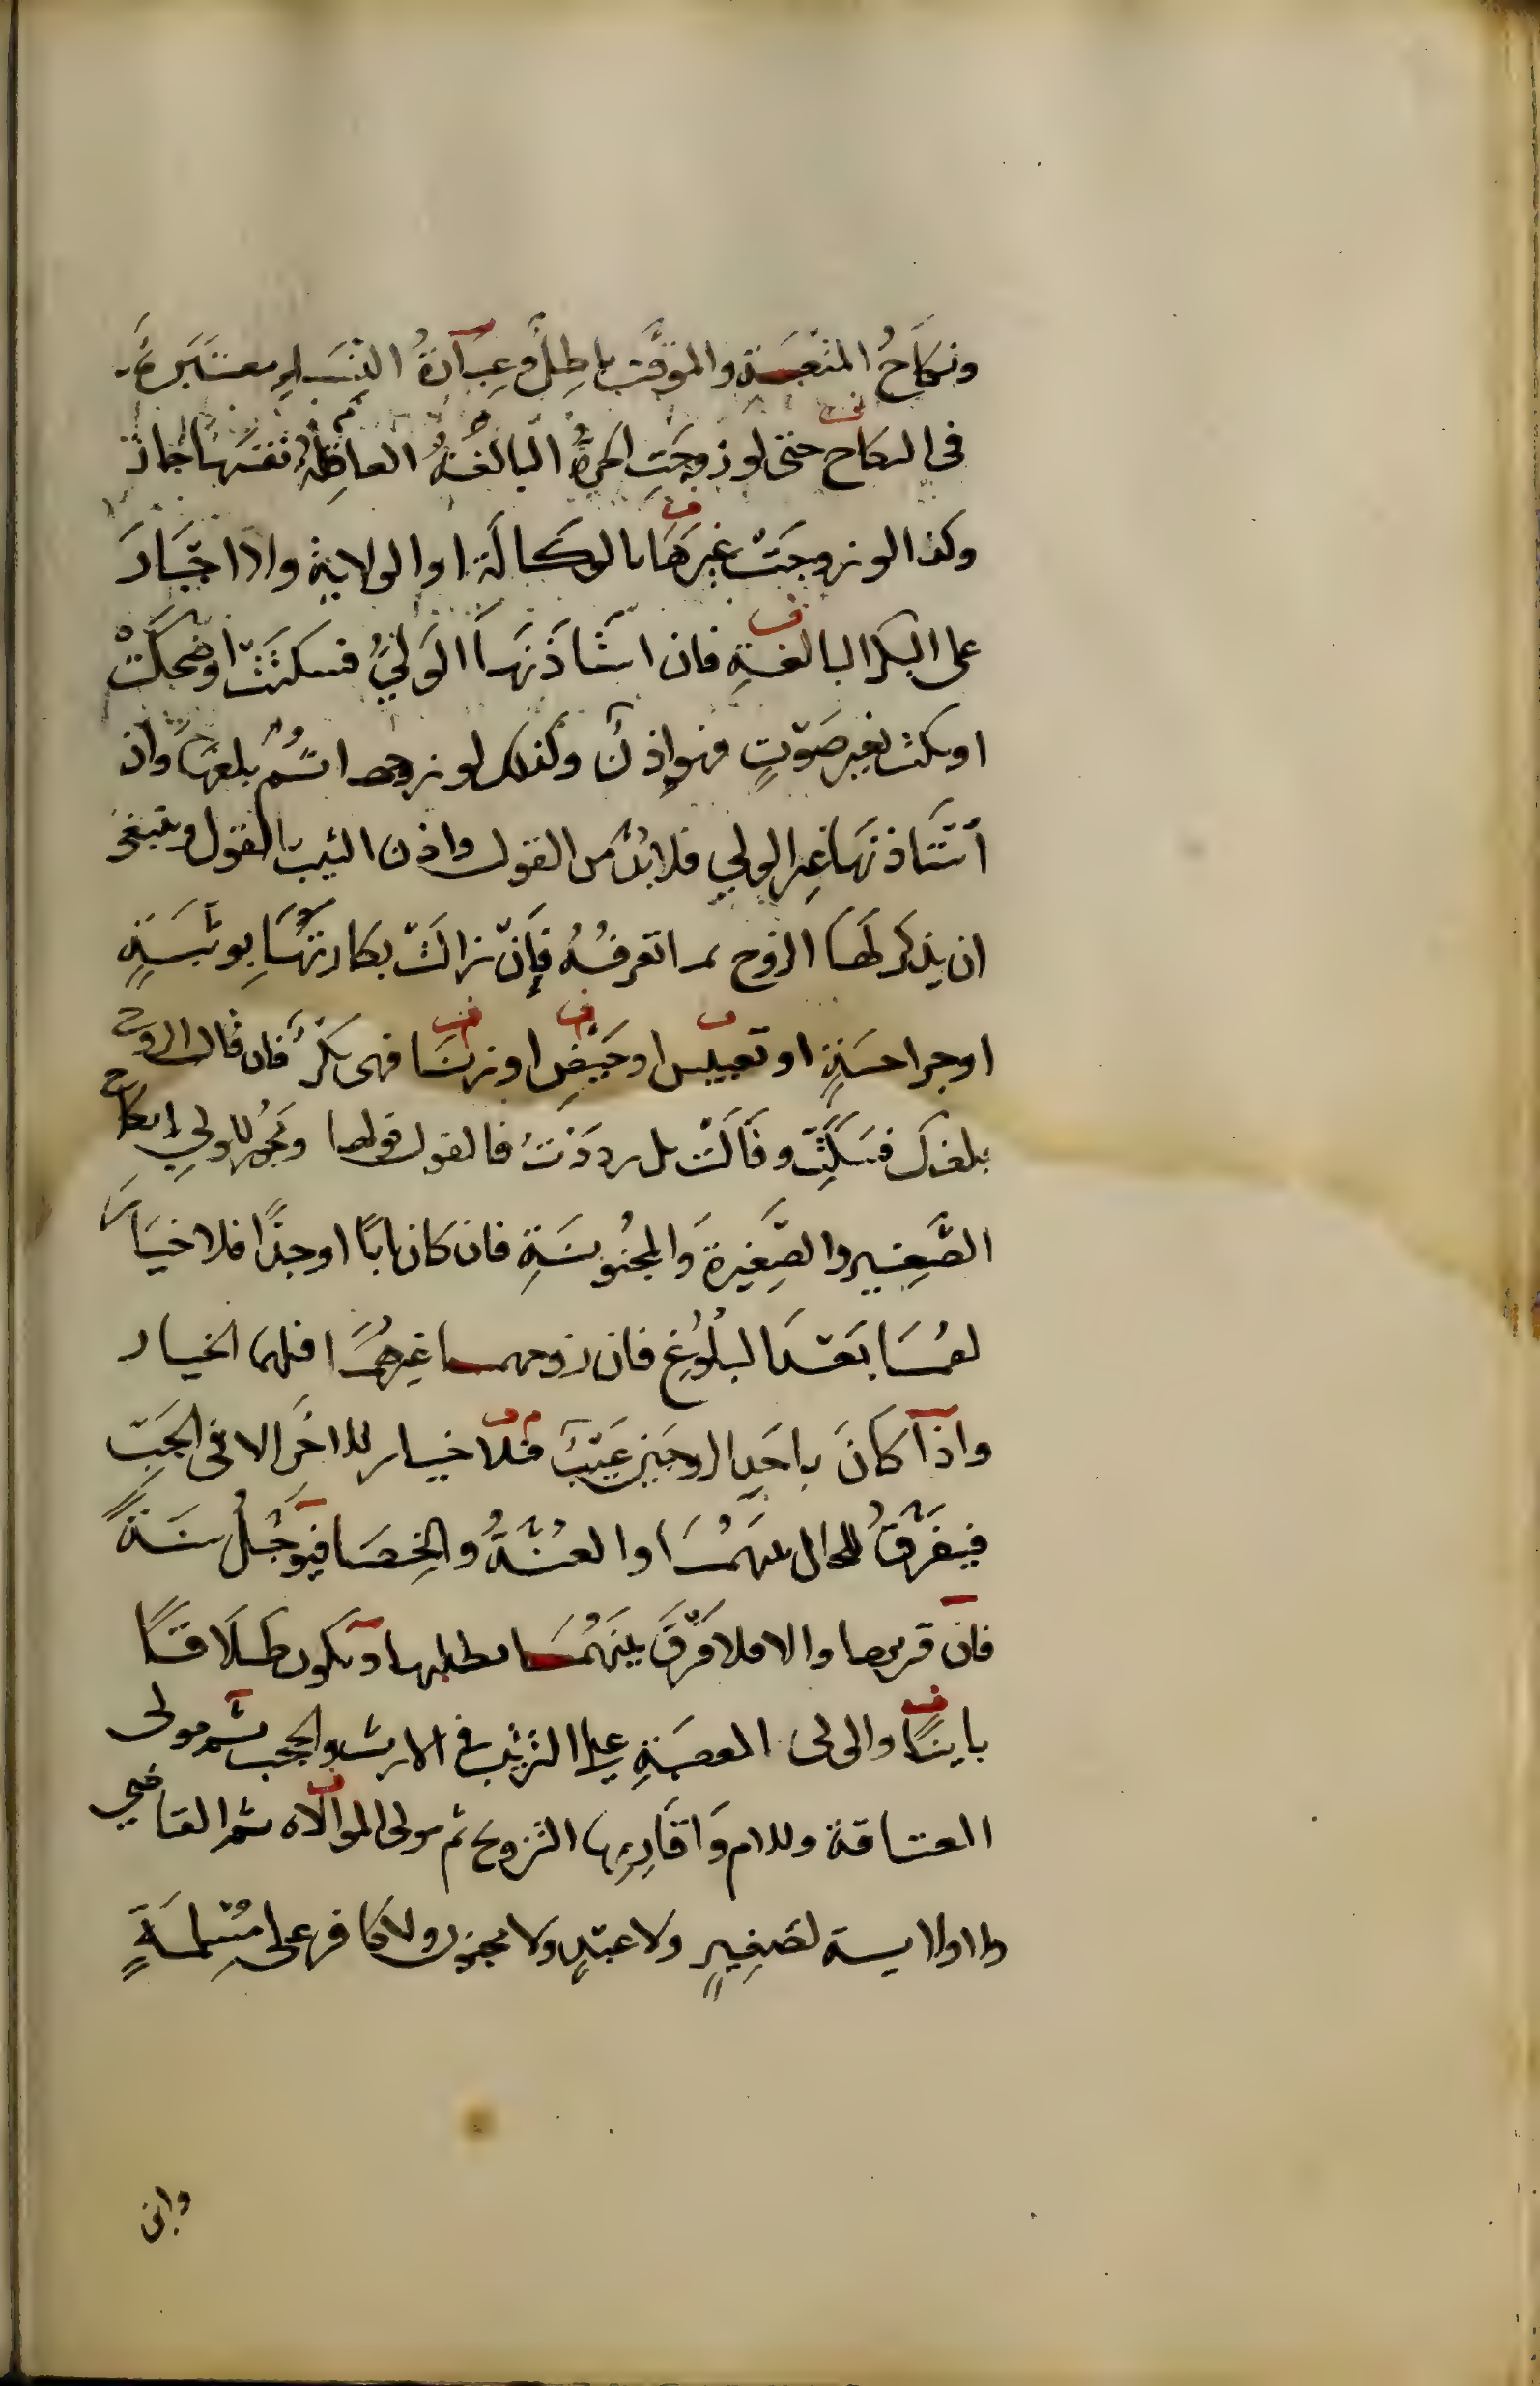 ونكاح المتعة والموقت باطل وعبارة النساء معتبرة
في النكاح حتى لو زوجت الحرة البالغة العاقلة نفسها جاز
وكذا لو زوجت غيرها بالوكالة او الولاية ولا اجبار
على البكر البالغة فان استأذنها الولي فسكتت او ضحكت
او بكت بغير صوت فهو إذن وكذلك لو زوجها ثم بلغها وان
استأذنها غير الولي فلا بد من القول واذن الثيب بالقول وينبغي
ان يذكر لها الزوج بما تعرفه فإن زالت بكارتها بوثبة
او جراحة او تعنيس او حيض او زنا فهي بكر فان قال الزوج
بلغك فسكت وقالت بل رددت فالقول قولها ويجوز للولي انكاح
الصغير والصغيرة والمجنونة فان كان ابا او جدا فلا خيار
لهما بعد البلوغ فان زوجهما غيرهما فلهما الخيار
واذا كان باحد الزوجين عيب فلا خيار للآخر الا في الجب
فيفرق للحال بينهما والعنة والخصا فيوجل سنة
فان قربها والا فلا فرق بينهما بطلبها وتكون طلاقا
باينا والولي العصبة على الترتيب في الارث والحجب ثم مولى
العتاقة وللام واقاربها التزويج ثم مولى الموالاه ثم القاضي
ولا ولاية لصغير ولا عبد ولا مجنون ولا كافر على مسلمة
وابن